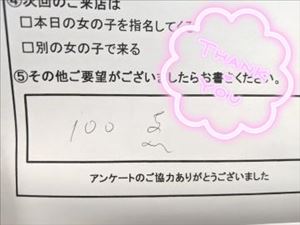 ④次回のご来店は
□本日の女の子を指名してく
□別の女の子で来る
THANK YOU
⑤その他ご要望がございましたらお書きください。
100点
アンケートのご協力ありがとうございました